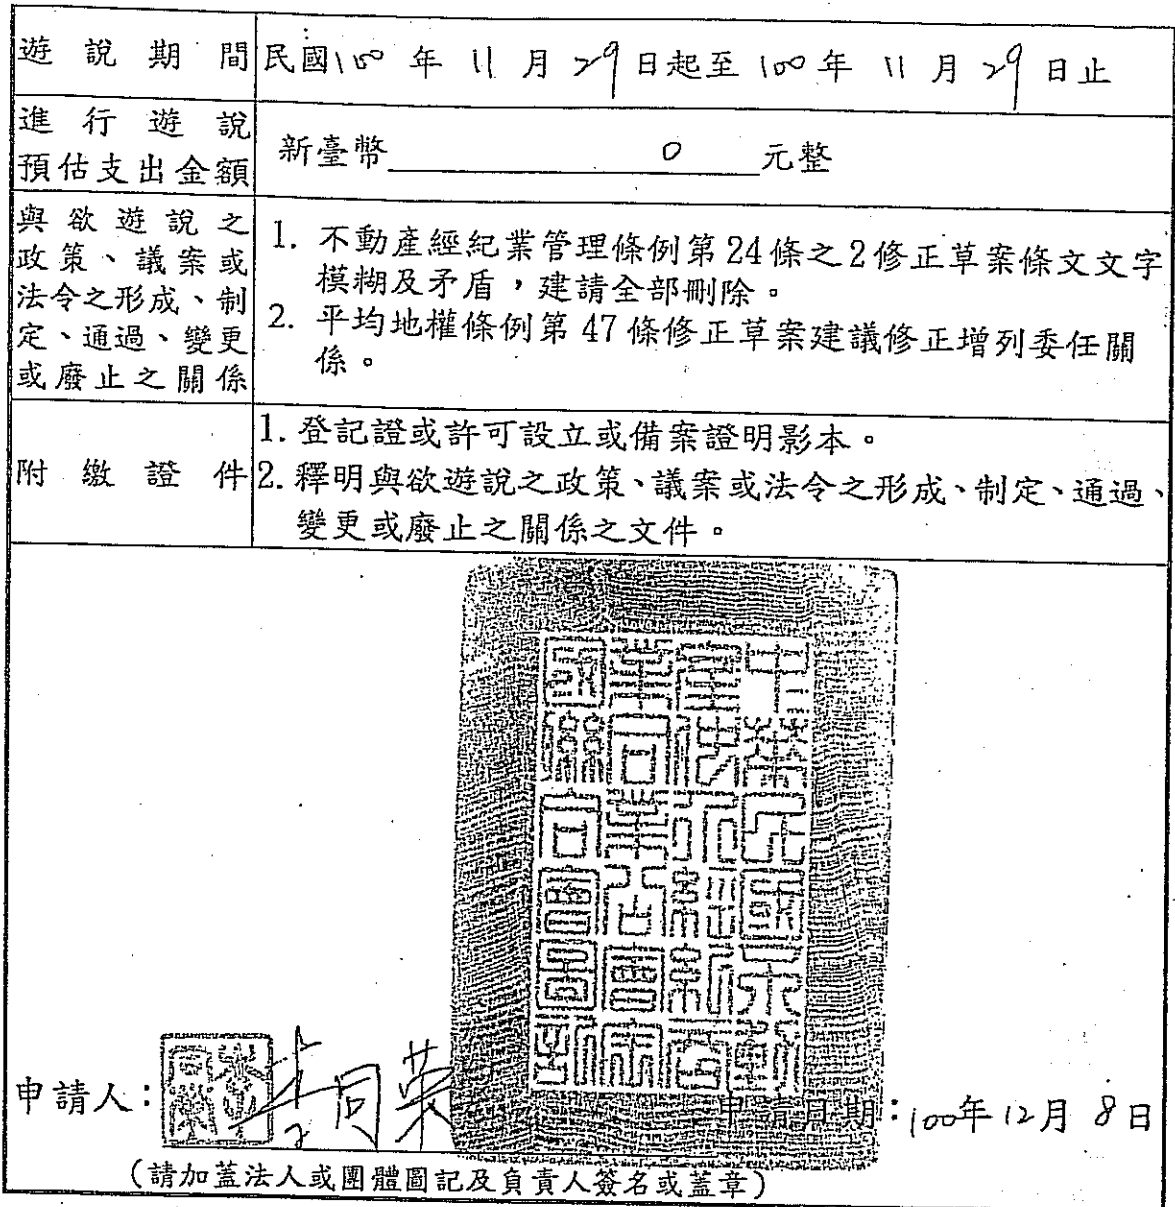 遊說期間 民國100年11月29日起至100年11月29日止
進行遊說
預估支出金額
新臺幣 0 元整
與欲遊說之
政策、議案或
法令之形成、制
定、通過、變更
或廢止之關係
1. 不動產經紀業管理條例第24條之2修正草案條文文字
模糊及矛盾，建請全部刪除。
2. 平均地權條例第47條修正草案建議修正增列委任關
係。
附繳證件
1. 登記證或許可設立或備案證明影本。
2. 釋明與欲遊說之政策、議案或法令之形成、制定、通過、
變更或廢止之關係之文件。
中華民國不動
產仲介經紀商
業同業公會全
國聯合會圖記
申請人：李同榮 申請日期：100年12月8日
（請加蓋法人或團體圖記及負責人簽名或蓋章）